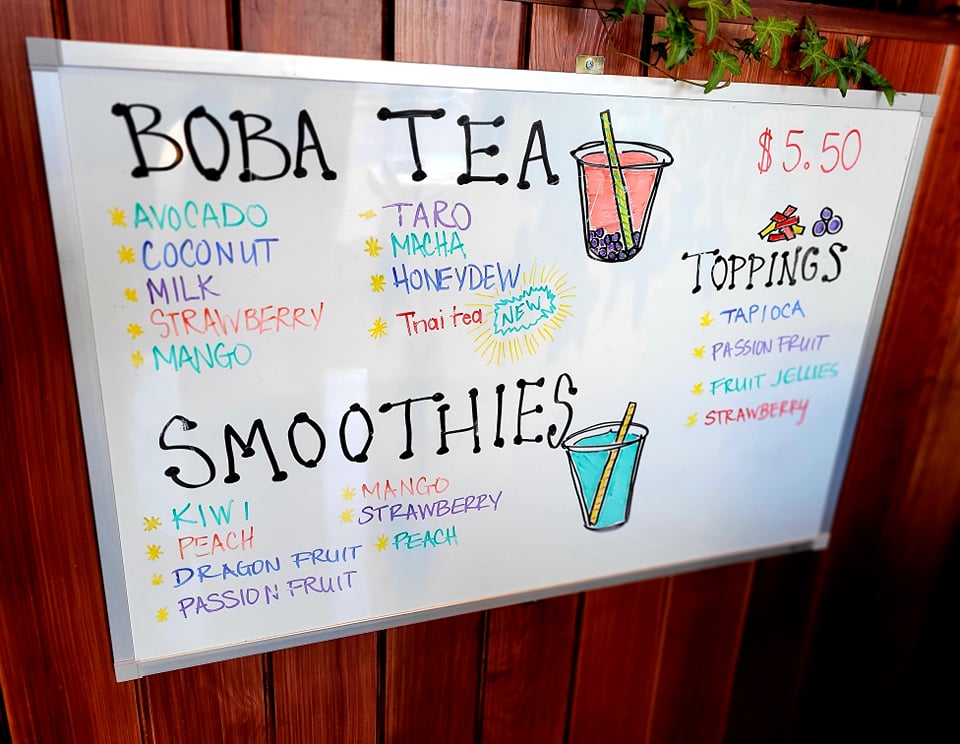 BOBA TEA
AVOCADO
COCONUT
MILK
STRAWBERRY
MANGO
TARO
MACHA
HONEYDEW
Thai tea NEW
SMOOTHIES
KIWI
PEACH
DRAGON FRUIT
PASSION FRUIT
MANGO
STRAWBERRY
PEACH
$5.50
TOPPINGS
TAPIOCA
PASSION FRUIT
FRUIT JELLIES
STRAWBERRY